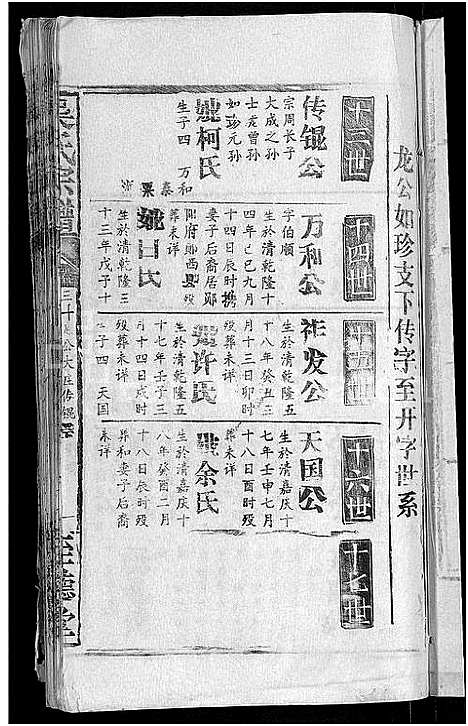 龙公如珍支下传字至升字世系
十三世
传锟公
宗周长子
大成之孙
士彦曾孙
如珍元孙
妣柯氏
生子四 万和
泰
粟
十四世
万和公
字伯顺
生於清乾隆十
四年己巳九月
十四日辰时携
妻子后裔居郧
阳府郧西县殁
葬未详
妣吕氏
生於清乾隆三
十三年戊子十
十五世
祚发公
生於清乾隆五
十八年癸丑三
月十三日卯时
殁葬未详
妣许氏
生於清乾隆五
十七年壬子三
月十四日戌时
殁葬未详
生子四 天国
十六世
天国公
生於清嘉庆十
七年壬申七月
十八日酉时殁
葬未详
妣余氏
生於清嘉庆十
八年癸酉二月
十八日辰时殁
葬和妻子后裔
未详
十七世
吴氏宗谱
至德堂